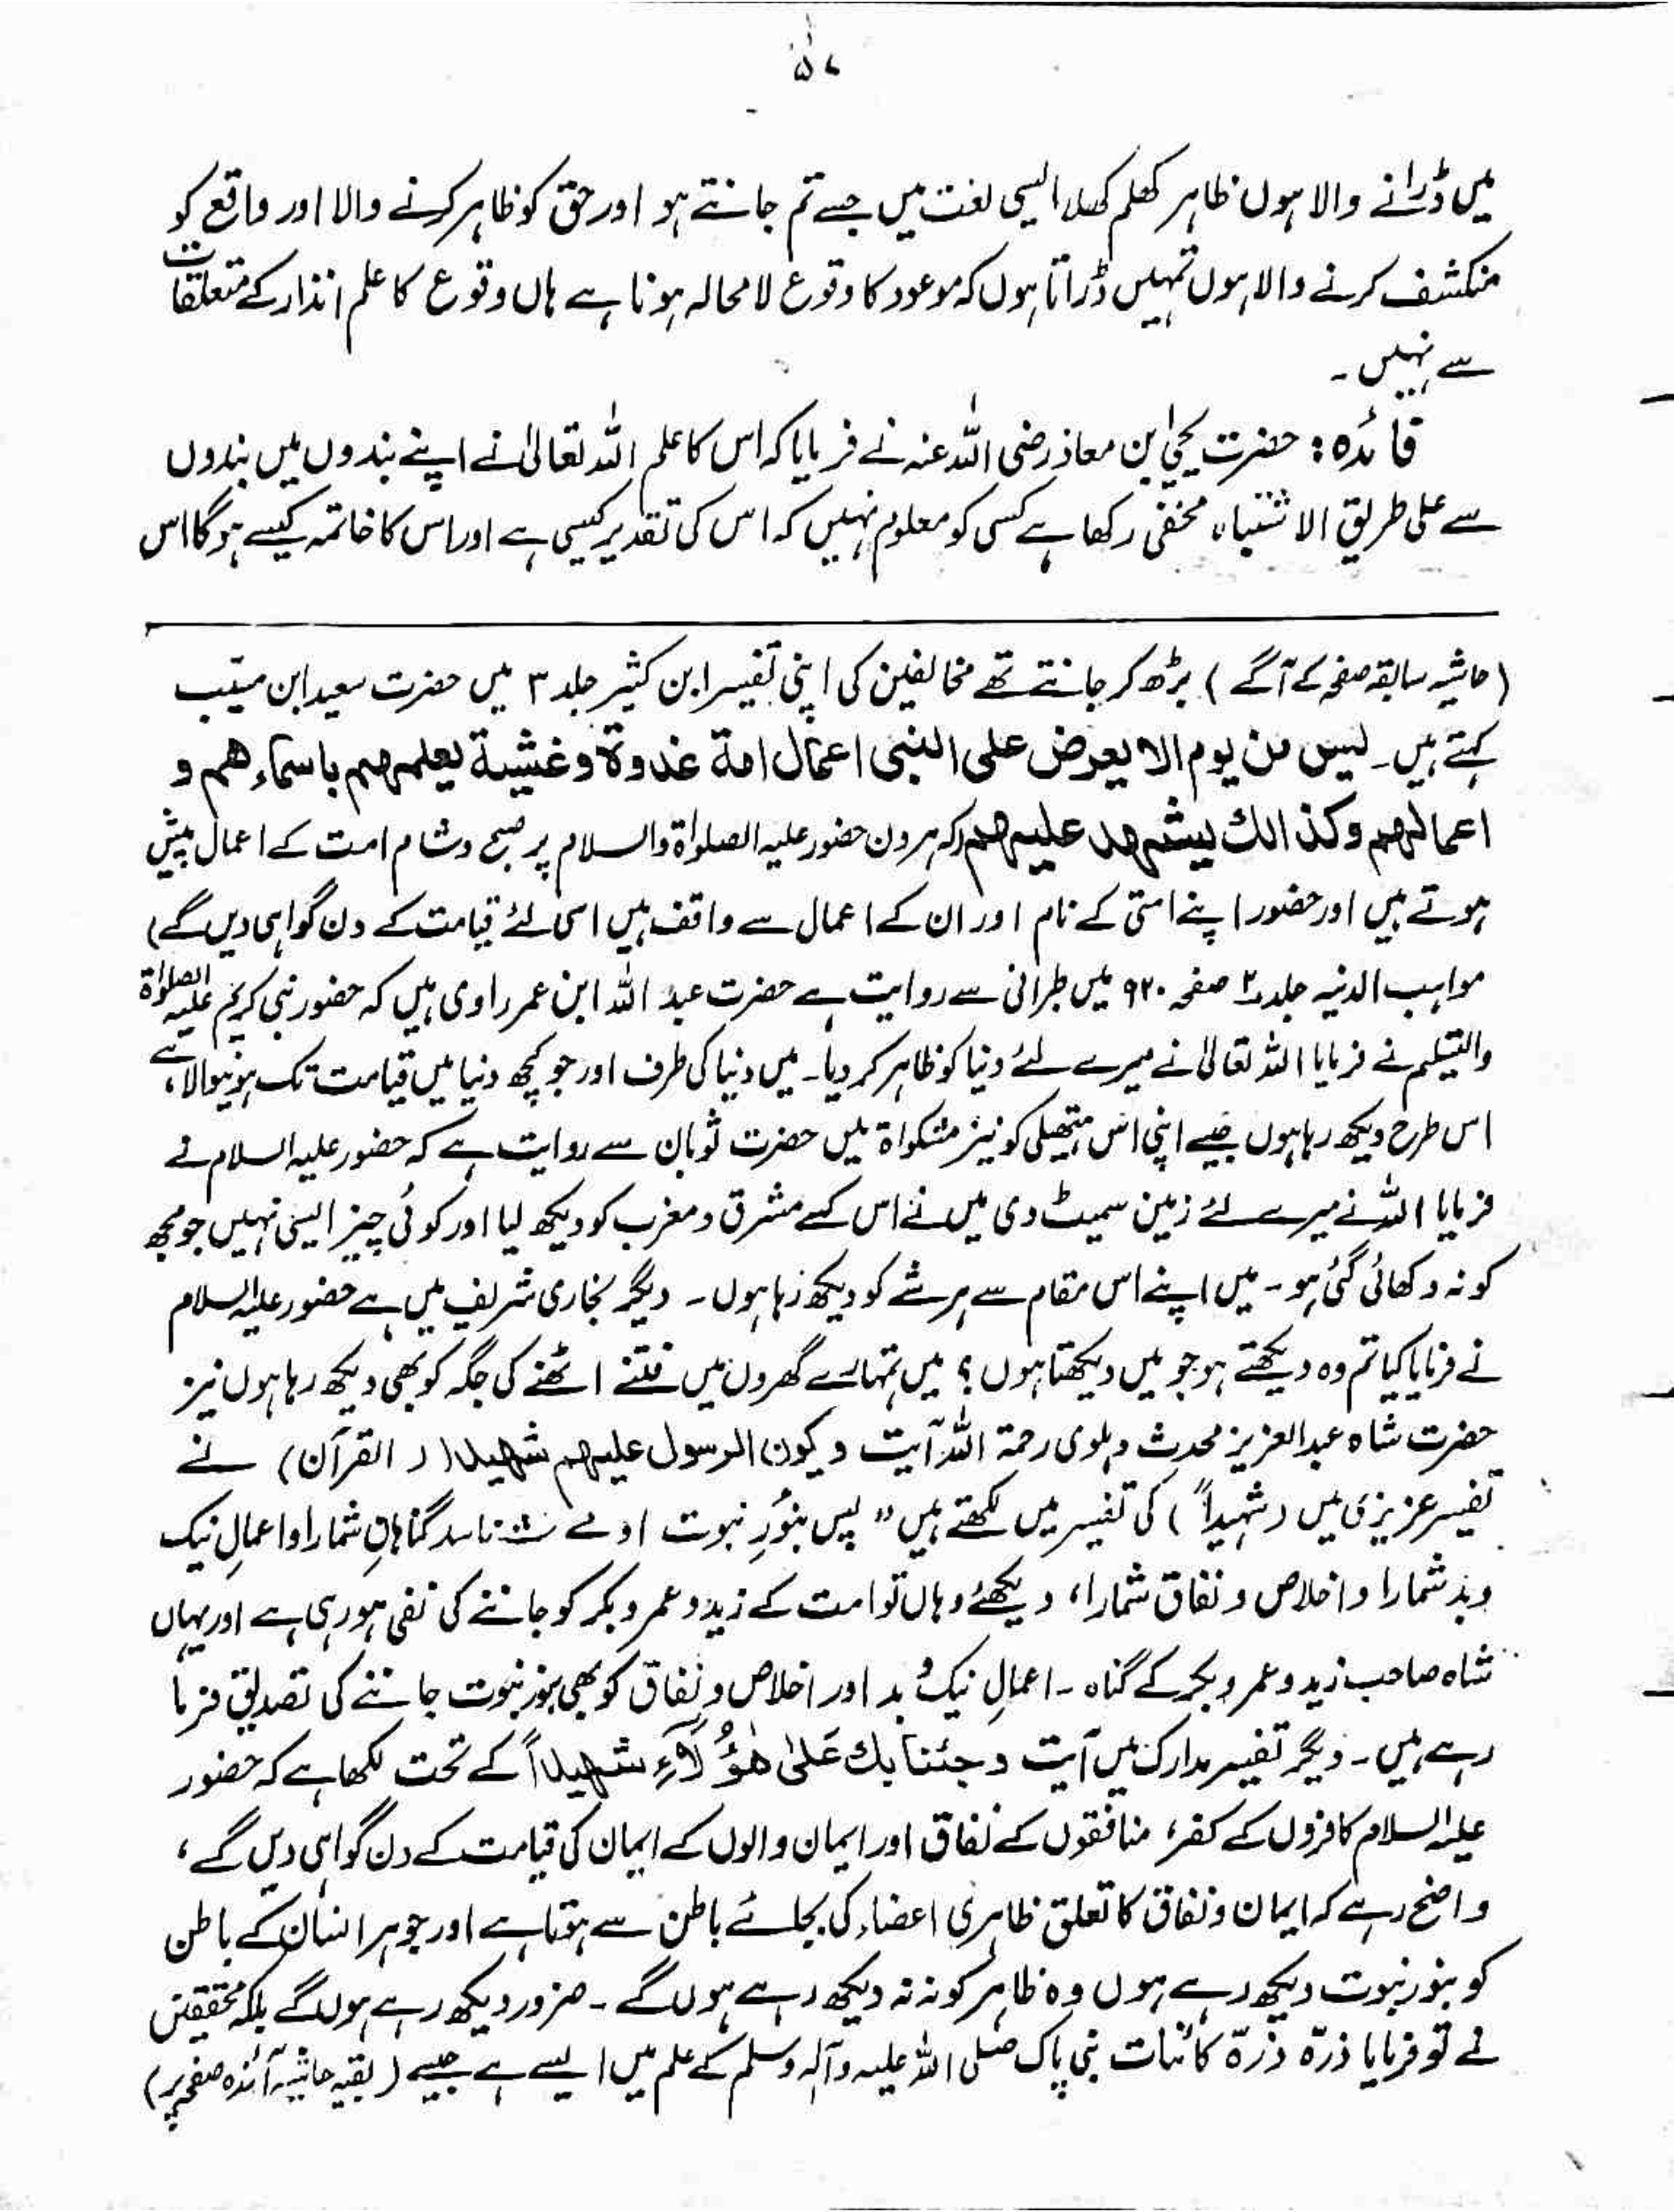 ۵۷
میں ڈرانے والا ہوں ظاہر کھلم کھلا ایسی لغت میں جسے تم جانتے ہو اور حق کو ظاہر کرنے والا اور واقع کو
منکشف کرنے والا ہوں تمہیں ڈراتا ہوں کہ موعود کا وقوع لا محالہ ہونا ہے ہاں وقوع کا علم انذار کے متعلقات
سے نہیں۔
فائدہ: حضرت یحیٰ ابن معاذ رضی اللہ عنہ نے فرمایا کہ اس کا علم اللہ تعالیٰ نے اپنے بندوں میں بندوں
سے علی طریق الاشتباہ مخفی رکھا ہے کسی کو معلوم نہیں کہ اس کی تقدیر کیسی ہے اور اس کا خاتمہ کیسے ہوگا اس
(حاشیہ سابقہ صفحہ کے آگے) بڑھ کر جانتے تھے مخالفین کی اپنی تفسیر ابن کثیر جلد ۳ میں حضرت سعید ابن مسیّب
کہتے ہیں۔ لیس من یوم الا یعرض علی النبی اعمال امة غدوة وغشیة یعلمہم باسماءھم و
اعمالہم وکذالك لیشہد علیہم (کہ ہر دن حضور علیہ الصلوٰۃ والسلام پر صبح و شام امت کے اعمال پیش
ہوتے ہیں اور حضور اپنے امتی کے نام اور ان کے اعمال سے واقف ہیں اسی لئے قیامت کے دن گواہی دیں گے)
مواہب الدنیہ جلد ۲ صفحہ ۹۲۰ میں طبرانی سے روایت ہے حضرت عبد اللہ ابن عمر راوی ہیں کہ حضور نبی کریم علیہ الصلوٰۃ
والتسلیم نے فرمایا اللہ تعالیٰ نے میرے لئے دنیا کو ظاہر کر دیا۔ میں دنیا کی طرف اور جو کچھ دنیا میں قیامت تک ہونیوالا ہے،
اس طرح دیکھ رہا ہوں جیسے اپنی اس ہتھیلی کو نیز مشکواۃ میں حضرت ثوبان سے روایت ہے کہ حضور علیہ السلام نے
فرمایا اللہ نے میرے لئے زمین سمیٹ دی میں نے اس کے مشرق و مغرب کو دیکھ لیا اور کوئی چیز ایسی نہیں جو مجھ
کو نہ دکھائی گئی ہو۔ میں اپنے اس مقام سے ہر شے کو دیکھ رہا ہوں۔ دیگر بخاری شریف میں ہے حضور علیہ السلام
نے فرمایا کیا تم وہ دیکھتے ہو جو میں دیکھتا ہوں؟ میں تمہارے گھروں میں فتنے اٹھنے کی جگہ کو بھی دیکھ رہا ہوں نیز
حضرت شاہ عبدالعزیز محدث دہلوی رحمۃ اللہ آیت ویکون الرسول علیہم شہیدا (القرآن) نے
تفسیر عزیزی میں (شہیداً) کی تفسیر میں لکھتے ہیں" پس بنُورِ نبوت اومے شناسد گناہانِ شمارا واعمالِ نیک
وبد شمارا و اخلاص و نفاق شمارا، دیکھئے وہاں تو امت کے زید و عمر و بکر کو جاننے کی نفی ہو رہی ہے اور یہاں
شاہ صاحب زید و عمر و بکر کے گناہ۔ اعمالِ نیک و بد اور اخلاص و نفاق کو بھی بنور نبوت جاننے کی تصدیق فرما
رہے ہیں۔ دیگر تفسیر مدارک میں آیت وجئنا بك عَلیٰ هٰؤُلَآءِ شہیداً کے تحت لکھا ہے کہ حضور
علیہ السلام کافروں کے کفر، منافقوں کے نفاق اور ایمان والوں کے ایمان کی قیامت کے دن گواہی دیں گے،
واضح رہے کہ ایمان و نفاق کا تعلق ظاہری اعضاء کی بجائے باطن سے ہوتا ہے اور جو ہر انسان کے باطن
کو بنور نبوت دیکھ رہے ہوں وہ ظاہر کو نہ نہ دیکھ رہے ہوں گے۔ ضرور دیکھ رہے ہوں گے بلکہ محققین
نے تو فرمایا ذرّہ ذرّہ کائنات نبی پاک صلی اللہ علیہ وآلہ وسلم کے علم میں ایسے ہے جیسے (بقیہ حاشیہ آئندہ صفحہ پر)